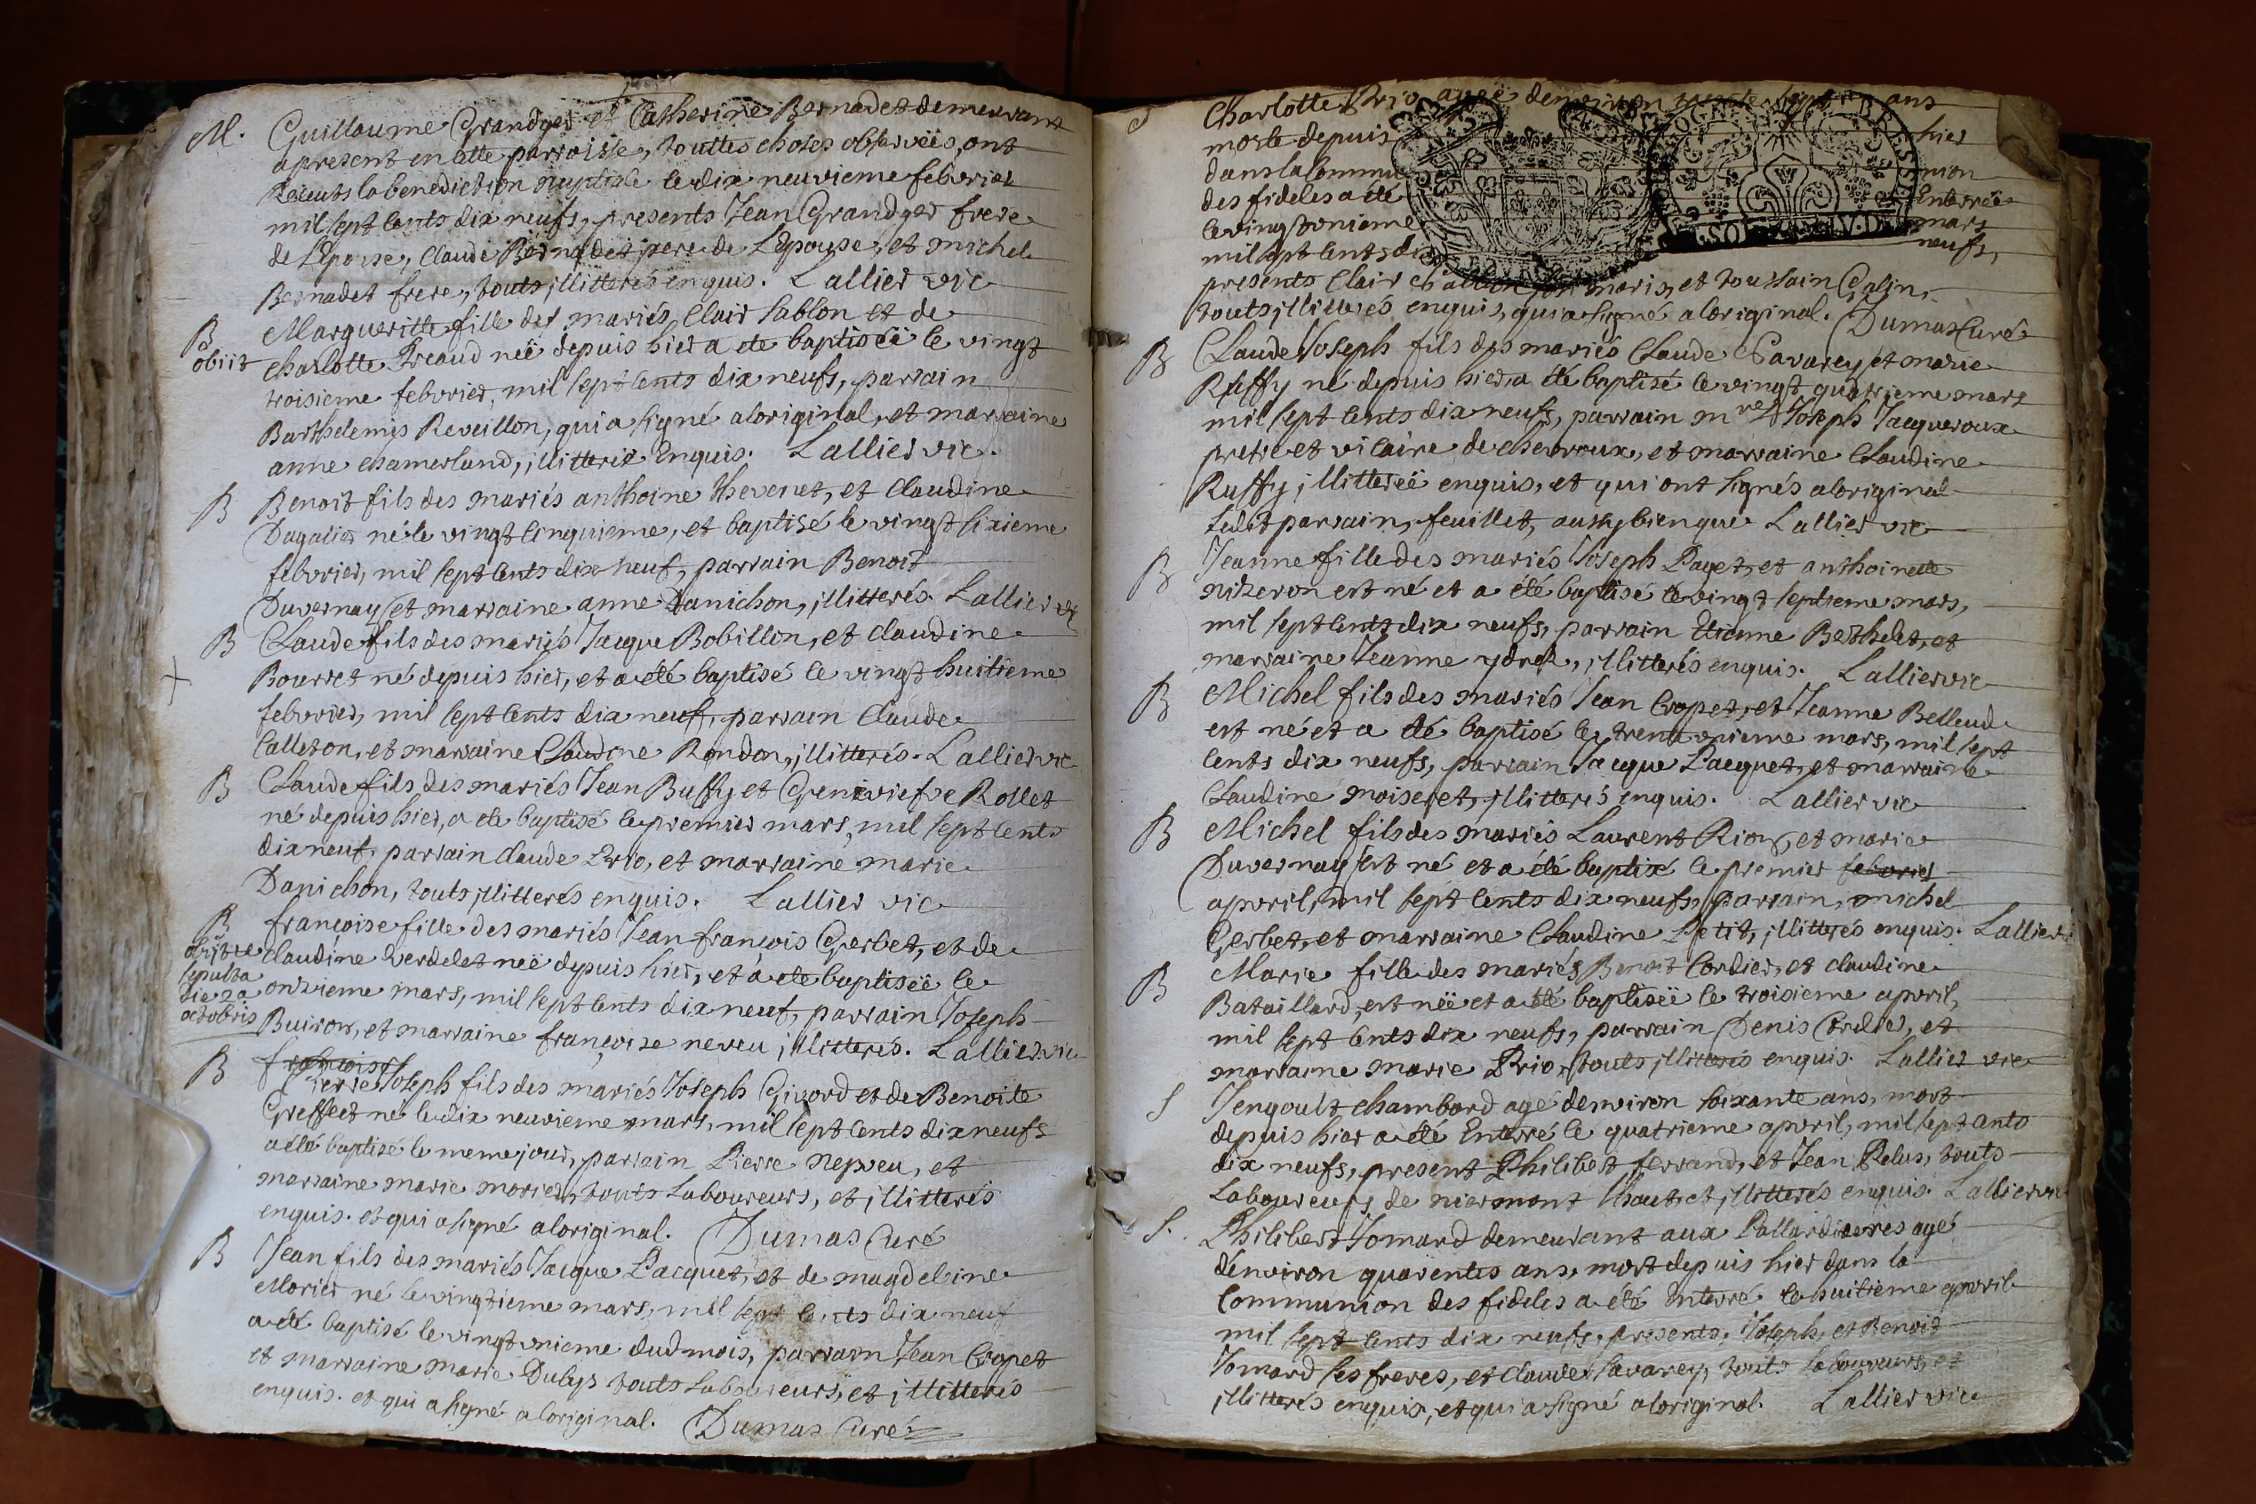 M. Guillaume Grandger et Catherine Bernadet demeurant
apresent en cette parroisse, touttes choses observées, ont
Receuts la benediction nuptiale le dix neuvieme febvrier
mil sept cents dix neufs, presents Jean Grandger frere
de L'Epouse, Claude Bernadet pere de L'Epouse, et michel
Bernadet frere, touts illitterés enquis. Lallier vic
B Margueritte fille des mariés Clair Sablon et de
obiit charlotte Breaud neë depuis hier a ete baptiseë le vingt
troisieme febvrier, mil sept cents dix neufs, parrain
Barthelemis Reveillon, qui a signé aloriginal, et marraine
anne chamerland, illitteré Enquis. Lallier vic.
B Benoit fils des mariés anthoine thevenet, et Claudine
Dagalier né le vingt cinquieme, et baptisé le vingt sixieme
febvrier, mil sept cents dix neuf, parrain Benoit
Duvernay et marraine anne Danichon, illitterés. Lallier vic
B Claude fils des mariés Jacque Bobillon, et Claudine
Bourret né depuis hier, et a eté baptisé le vingt huitieme
febvrier, mil sept cents dix neuf, parrain Claude
Calleton, et marraine Claudine Rondon, illitterés. Lallier vic
B Claude fils des mariés Jean Buffy et Geneviefve Rollet
né depuis hier, a ete baptisé le premier mars, mil sept cents
dix neuf, parrain Claude Brio, et marraine marie
Danichon, touts illitterés enquis. Lallier vic
B françoise fille des mariés Jean françois Gerbet, et de
obiit et claudine Verdelet neë depuis hier, et a ete baptiseë le
sepulta onzieme mars, mil sept cents dix neuf, parrain Joseph
die 20 octobris Buiron, et marraine françoise neveu, illitterés. Lallier vic
B françois
Pierre Joseph fils des mariés Joseph Givord et de Benoite
Greffet né le dix neuvieme mars, mil sept cents dix neufs
a eté baptisé le meme jour, parrain Pierre Nepveu, et
marraine marie morier, touts Laboureurs, et illitterés
enquis. et qui a signé aloriginal. Dumas Curé
B Jean fils des mariés Jacque Pacquet, et de magdeleine
Morier né le vingtieme mars, mil sept cents dix neuf
a eté baptisé le vingt unieme dud mois, parrain Jean Cropet
et marraine marie Dubys touts Laboureurs, et illitterés
enquis. et qui a signé aloriginal. Dumas Curé
S Charlotte Brio, agë denviron ans
morte depuis hier
dans la Commu nion
des fideles a été Enterrée
le vingt unieme mars
mil sept cents dix neufs,
presents Clair maris, et toussain Galin,
touts illitterés enquis, qui a signé aloriginal. Dumas Curé
B Claude Joseph fils des mariés Claude Savarey et marie
Ruffy né depuis hier, a été baptisé le vingt quatrieme mars
mil sept cents dix neufs, parrain mre Joseph Jacqueroux
pretre et vicaire de chevroux, et marraine Claudine
Ruffy, illitereë enquis, et qui ont signés aloriginal
ledit parrain, feuillet, aussy bien que Lallier vic
B Jeanne fille des mariés Joseph Paget, et anthoinette
nizeron est né et a été baptisé le vingt septieme mars,
mil sept cents dix neufs, parrain Etienne Berthelet, et
marraine Jeanne ydrel, illitterés enquis. Lallier vic
B Michel fils des mariés Jean Cropet, et Jeanne Belleud
est né et a été baptisé le trent unieme mars, mil sept
cents dix neufs, parrain Jacque Pacquet, et marraine
Claudine moiseret, illitterés enquis. Lallier vic
B Michel fils des mariés Laurent Rion, et marie
Duvernay est né et a été baptisé le premier febvrier
apvril, mil sept cents dix neufs, parrain, michel
Gerbet, et marraine Claudine Petit, illitterés enquis. Lallier
B Marie fille des mariés Benoit Cordier, et claudine
Bataillard, est neë et a été baptiseë le troisieme apvril,
mil sept cents dix neufs, parrain Denis Cordier, et
marraine marie Brio, touts illitterés enquis. Lallier vic
S Gengoult chambard agé denviron soixante ans, mort
depuis hier a été Enterré le quatrieme apvril, mil sept cents
dix neufs, present Philibert ferrand, et Jean Relus, touts
Laboureurs, de niermont Lhaut et illitterés enquis. Lallier vic
S. Philibert Jomard demeurant aux Pallardieres agé
denviron quarentes ans, mort depuis hier dans la
Communion des fideles a été Enterré le huitieme apvril
mil sept cents dix neufs, presents, Joseph, et Benoit
Jomard ses freres, et Claude Savarey, touts Laboureurs, et
illitterés enquis, et qui a signé aloriginal. Lallier vic